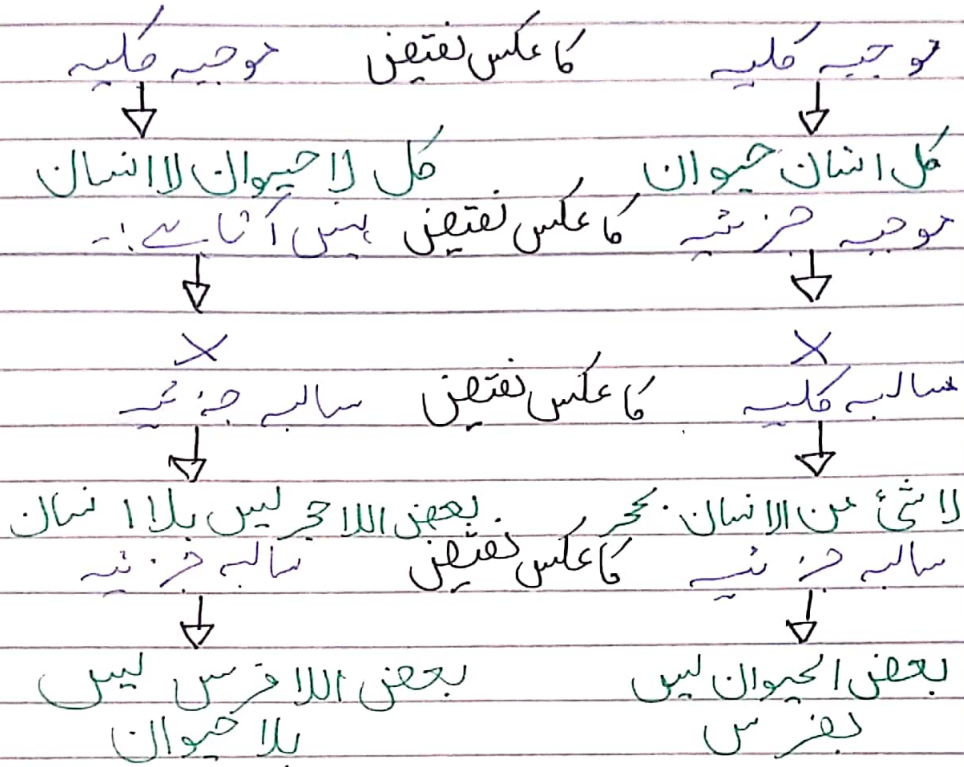 موجبہ کلیہ کا عکس نقیض موجبہ کلیہ
کل انسان حیوان کل لا حیوان لا انسان
موجبہ جزئیہ کا عکس نقیض نہیں آتا ہے :۔
X X
سالبہ کلیہ کا عکس نقیض سالبہ جزئیہ
لا شئ من الانسان بحجر بعض اللا حجر لیس بلا انسان
سالبہ جزئیہ کا عکس نقیض سالبہ جزئیہ
بعض الحیوان لیس بعض اللا فرس لیس
بفرس بلا حیوان